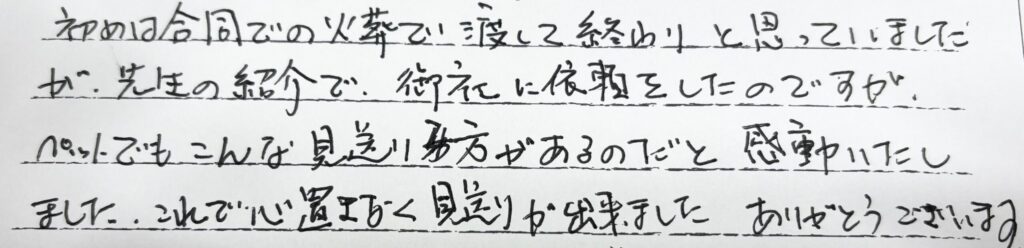 初めは合同での火葬で渡して終わりと思っていました
が、先生の紹介で、御社に依頼をしたのですが、
ペットでもこんな見送り方があるのだと感動いたし
ました。これで心置きなく見送りが出来ました ありがとうございます